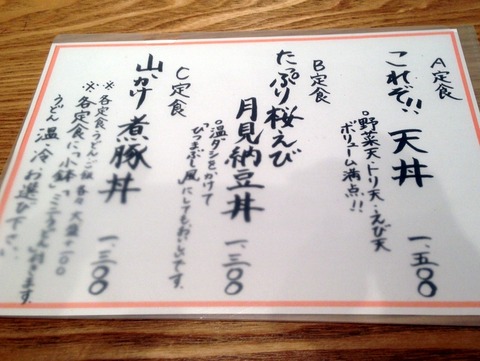 A定食
これぞ!! 天丼 一、五〇〇
○野菜天・トリ天・えび天
ボリューム満点!!
B定食
たっぷり桜えび
月見納豆丼 一、三〇〇
○温ダシをかけて
"ひつまぶし"風にしてもおいしいです。
C定食
山かけ煮豚丼 一、三〇〇
※各定食うどん・ご飯 各々大盛+100
※各定食に"小鉢"、ミニうどん付きます。
うどん 温・冷 お選び下さい。